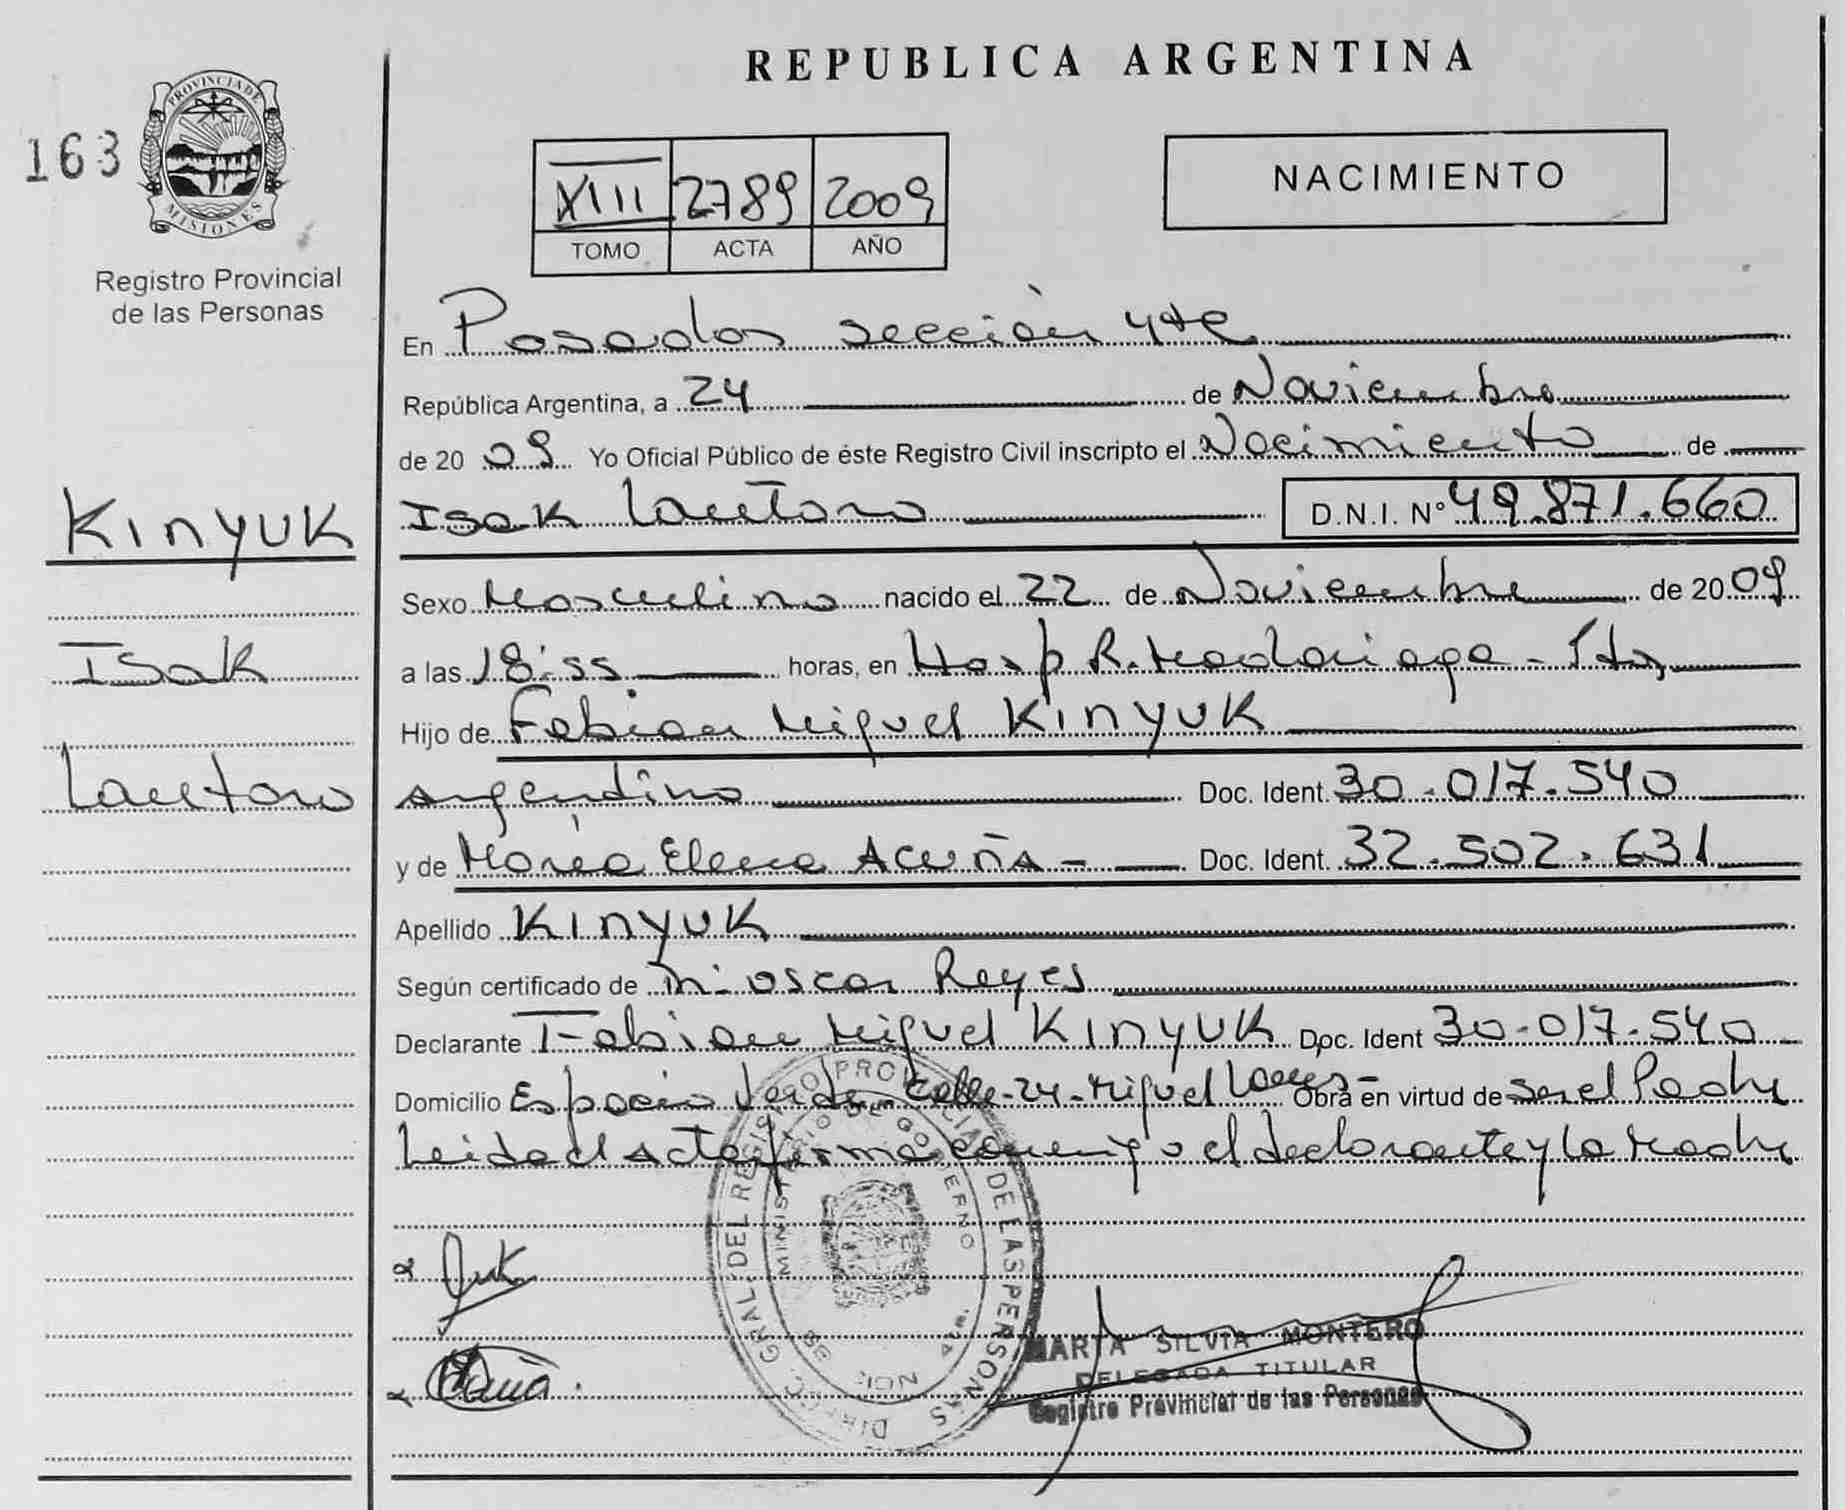 REPUBLICA ARGENTINA
163
PROVINCIA DE
MISIONES
Registro Provincial
de las Personas
XIII 2789 2009
TOMO ACTA AÑO
NACIMIENTO
En Posadas sección 4ta
República Argentina, a 24 de Noviembre
de 2009 Yo Oficial Público de éste Registro Civil inscripto el Nacimiento de
KINYUK
Isak Lautaro D.N.I. N° 49.871.660
Sexo Masculino nacido el 22 de Noviembre de 2009
Isak
a las 18:55 horas, en Hosp R. Madariaga -
Hijo de Fabian Miguel KINYUK
Lautaro
Argentino Doc. Ident. 30.017.540
y de María Elena ACUÑA - Doc. Ident. 32.502.631
Apellido KINYUK
Según certificado de Oscar Reyes
Declarante Fabian Miguel KINYUK Doc. Ident 30.017.540
Domicilio Espacio Verde Calle-24-Miguel Lanus - Obra en virtud de ser el Padre
Leida el Acta firma conmigo el declarante y la Madre
DIREC. GRAL. DEL REGISTRO PROVINCIAL DE LAS PERSONAS
MINISTERIO DE GOBIERNO
MARIA SILVIA MONTERO
DELEGADA TITULAR
Registro Provincial de las Personas